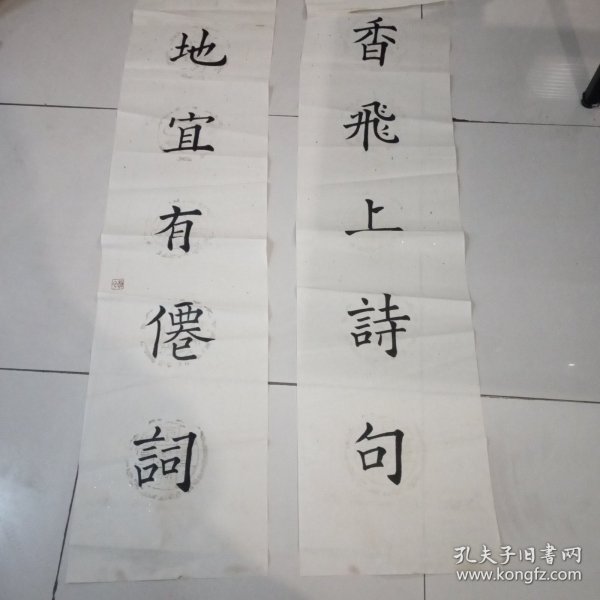 香飛上詩句
地宜有僊詞
孔夫子旧书网
www.kongfz.com